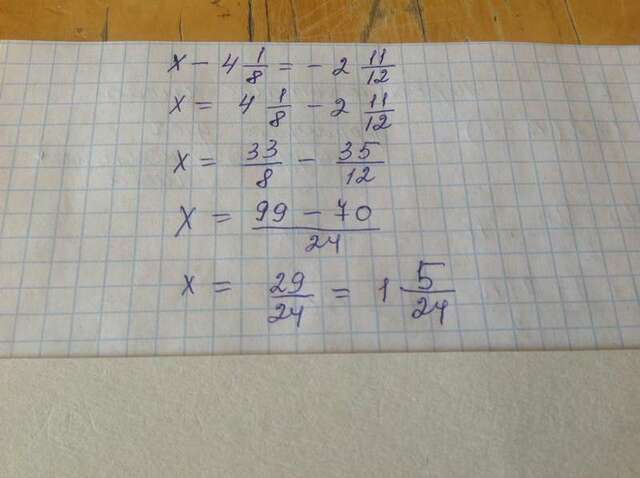 x - 4 1/8 = - 2 11/12
x = 4 1/8 - 2 11/12
x = 33/8 - 35/12
x = (99 - 70)/24
x = 29/24 = 1 5/24